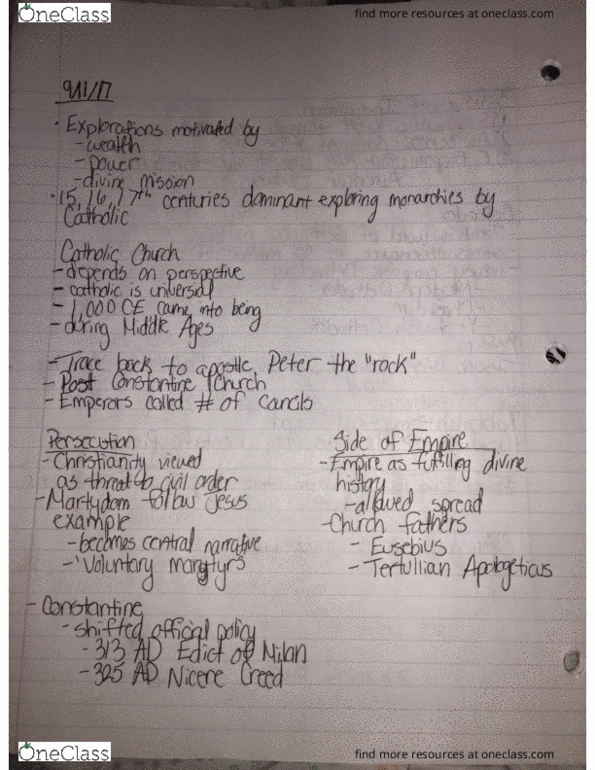 OneClass
find more resources at oneclass.com
9/11/17
· Explorations motivated by
- wealth
- power
- divine mission
· 15, 16, 17th centuries dominant exploring monarchies by
Catholic
Catholic Church
- depends on perspective
- catholic is universal
- 1,000 CE came into being
- during Middle Ages
- Trace back to apostle, Peter the "rock"
- Post Constantine Church
- Emperors called # of Councils
Persecution
- Christianity viewed
as threat to civil order
- Martydom follow Jesus
example
- becomes central narrative
- 'Voluntary martyrs'
Side of Empire
- Empire as fulfilling divine
history
- allowed spread
- Church fathers
- Eusebius
- Tertullian Apologeticus
- Constantine
- shifted official policy
- 313 AD Edict of Milan
- 325 AD Nicene Creed
OneClass
find more resources at oneclass.com